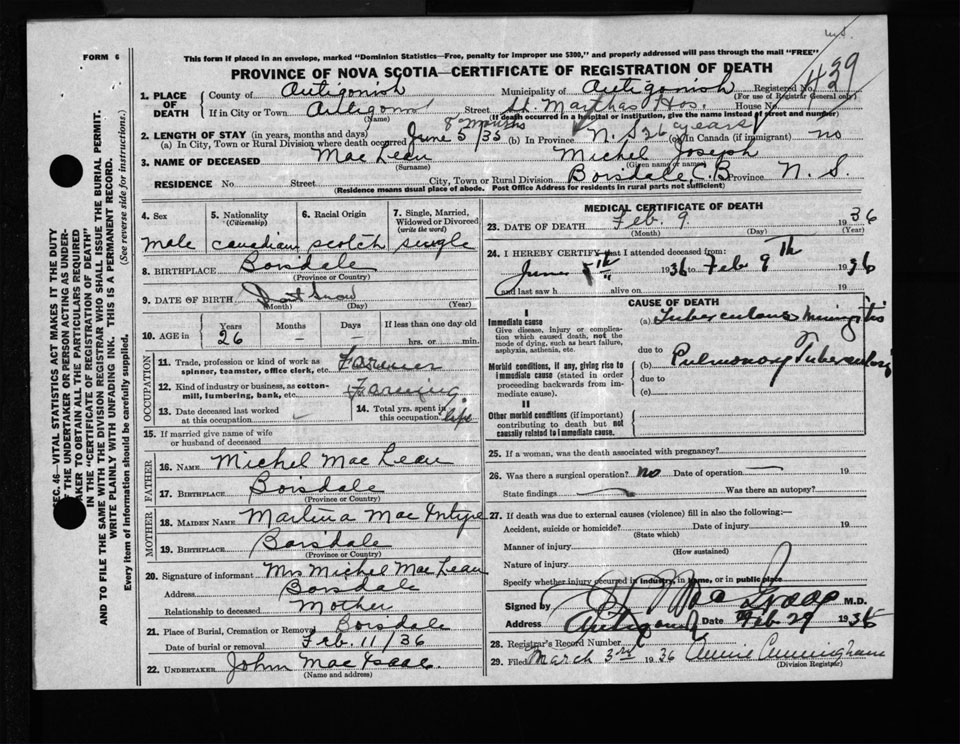 FORM 6
This form if placed in an envelope, marked "Dominion Statistics—Free, penalty for improper use $300," and properly addressed will pass through the mail "FREE"
PROVINCE OF NOVA SCOTIA—CERTIFICATE OF REGISTRATION OF DEATH
Registered No. 429
(For use of Registrar General only)
1. PLACE OF DEATH
County of Antigonish Municipality of Antigonish
If in City or Town Antigonish Street St. Marthas Hos. House No.
(Name) (If death occurred in a hospital or institution, give the name instead of street and number)
2. LENGTH OF STAY (in years, months and days)
(a) In City, Town or Rural Division where death occurred June 5/35 8 months (b) In Province N. S. 26 years (c) In Canada (if immigrant) no
3. NAME OF DECEASED Mac Lean Michel Joseph
(Surname) (Given name or names)
RESIDENCE No. Street City, Town or Rural Division Boisdale C.B. Province N. S.
(Residence means usual place of abode. Post Office Address for residents in rural parts not sufficient)
4. Sex
male
5. Nationality (Citizenship)
canadian
6. Racial Origin
scotch
7. Single, Married, Widowed or Divorced (write the word)
single
8. BIRTHPLACE Boisdale
(Province or Country)
9. DATE OF BIRTH Dont know
(Month) (Day) (Year)
10. AGE in Years Months Days If less than one day old
26 – – hrs. or min.
OCCUPATION
11. Trade, profession or kind of work as spinner, teamster, office clerk, etc. Farmer
12. Kind of industry or business, as cotton-mill, lumbering, bank, etc. Farming
13. Date deceased last worked at this occupation
14. Total yrs. spent in this occupation life
15. If married give name of wife or husband of deceased
FATHER
16. NAME Michel Mac Lean
17. BIRTHPLACE Boisdale
(Province or Country)
MOTHER
18. MAIDEN NAME Martina Mac Intyre
19. BIRTHPLACE Boisdale
(Province or Country)
20. Signature of informant Mrs Michel Mac Lean
Address Boisdale
Relationship to deceased Mother
21. Place of Burial, Cremation or Removal Boisdale
Date of burial or removal Feb. 11/36
22. UNDERTAKER John Mac Isaac
(Name and address)
MEDICAL CERTIFICATE OF DEATH
23. DATE OF DEATH Feb. 9 1936
(Month) (Day) (Year)
24. I HEREBY CERTIFY that I attended deceased from:
June 5th 1936 to Feb 9Th 1936
and last saw h alive on 19
CAUSE OF DEATH
I
Immediate cause
Give disease, injury or complication which caused death, not the mode of dying, such as heart failure, asphyxia, asthenia, etc.
(a) Tuberculous Miningitis
due to
Morbid conditions, if any, giving rise to immediate cause (stated in order proceeding backwards from immediate cause).
(b) Pulmonary Tuberculosis
due to
(c)
II
Other morbid conditions (if important) contributing to death but not causally related to immediate cause.
25. If a woman, was the death associated with pregnancy?
26. Was there a surgical operation? no Date of operation 19
State findings Was there an autopsy?
27. If death was due to external causes (violence) fill in also the following:—
Accident, suicide or homicide? Date of injury 19
(State which)
Manner of injury
(How sustained)
Nature of injury
Specify whether injury occurred in industry, in home, or in public place
Signed by M.D.
Address Antigonish Date Feb 29 1936
28. Registrar's Record Number
29. Filed March 3rd 1936 Annie Cunningham
(Division Registrar)
SEC. 46—VITAL STATISTICS ACT MAKES IT THE DUTY
OF THE UNDERTAKER OR PERSON ACTING AS UNDER-
TAKER TO OBTAIN ALL THE PARTICULARS REQUIRED
IN THE "CERTIFICATE OF REGISTRATION OF DEATH"
AND TO FILE THE SAME WITH THE DIVISION REGISTRAR WHO SHALL ISSUE THE BURIAL PERMIT.
WRITE PLAINLY WITH UNFADING INK. THIS IS A PERMANENT RECORD.
Every item of Information should be carefully supplied. (See reverse side for instructions.)